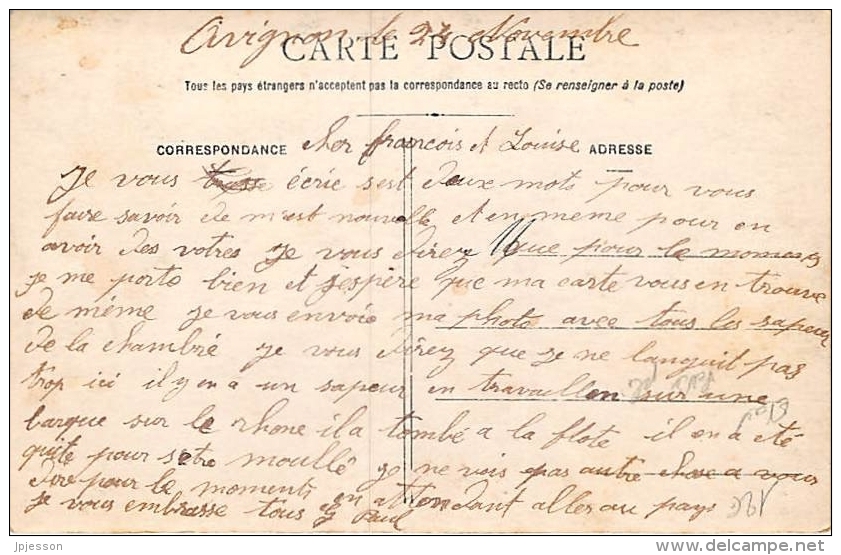 Avignon le 24 Novembre
CARTE POSTALE
Tous les pays étrangers n'acceptent pas la correspondance au recto (Se renseigner à la poste)
CORRESPONDANCE cher francois et Louise ADRESSE
Je vous écrie sest deux mots pour vous
faire savoir de m'est nouvelle et en meme pour en
avoir des votres je vous direz que pour le moments
je me porte bien et j'espère que ma carte vous en trouve
de même je vous envoie ma photo avec tous les sapeur
de la chambré je vous direz que je ne languit pas
trop ici il y en a un sapeur en travaillon sur une
barque sur le rhone il a tombé a la flote il en a été
quite pour setre moullé je ne vois pas autre chose a vous
dire pour le moments en attendant aller au pays
je vous embrasse tous Paul
jpjesson
www.delcampe.net